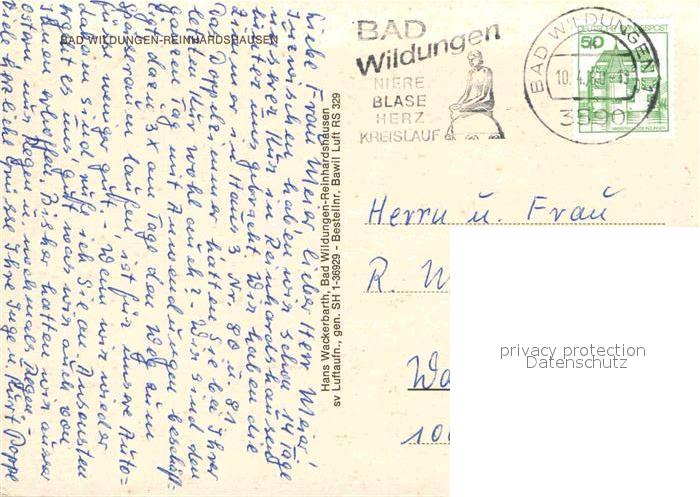 BAD WILDUNGEN-REINHARDSHAUSEN
Liebe Frau Meier, lieber Herr Meier,
Inzwischen haben wir schon 14 Tage
unserer Kur in Reinhardshausen
hinter uns gebracht. Wir haben die
Zimmer im Haus 3 Nr. 80 u. 81.
Das Doppelzimmer hatten Sie bei Ihrer
letzten Kur wohl auch? - Wir sind den
ganzen Tag mit Anwendungen beschäf-
tigt, dazu 3x am Tage den Weg zum
Speiseraum laufen, ist für unsere
für weniger gut. - Wenn wir wieder
daheim sind, rufe ich Sie an. Ansonsten
geht es uns gut, was wir auch von
Ihnen erhoffen. Bisher hatten wir ausser
Ostern nur Regen u. nochmals Regen -
Viele herzliche Grüsse Ihre Inge u. Kurt Poppe
Hans Wackerbarth, Bad Wildungen-Reinhardshausen
sv Luftaufn., gen. SH 1-36929 - Bestellnr. Bawil Luft RS 329
BAD
Wildungen
NIERE
BLASE
HERZ
KREISLAUF
BAD WILDUNGEN
10.4.
3590
DEUTSCHE BUNDESPOST
50
Herrn u. Frau
R. W
10
privacy protection
Datenschutz